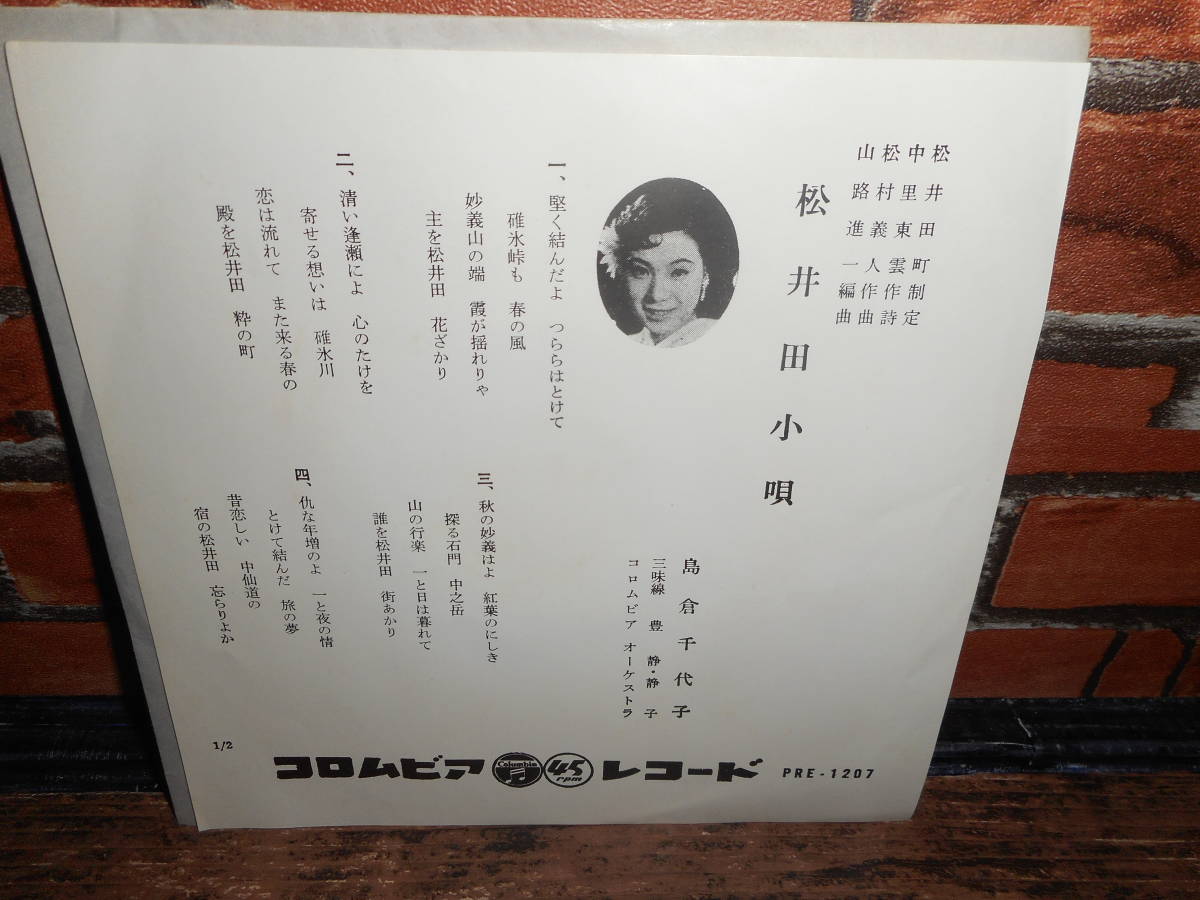 松井田町制定
中里東雲作詩
松村義人作曲
山路進一編曲
松井田小唄
島倉千代子
三味線 豊 静・静子
コロムビア オーケストラ
一、堅く結んだよ つららはとけて
碓氷峠も 春の風
妙義山の端 霞が揺れりゃ
主を松井田 花ざかり
二、清い逢瀬によ 心のたけを
寄せる想いは 碓氷川
恋は流れて また来る春の
殿を松井田 粋の町
三、秋の妙義はよ 紅葉のにしき
探る石門 中之岳
山の行楽 一と日は暮れて
誰を松井田 街あかり
四、仇な年増のよ 一と夜の情
とけて結んだ 旅の夢
昔恋しい 中仙道の
宿の松井田 忘らりよか
1/2
コロムビア Columbia 45 rpm レコード PRE-1207